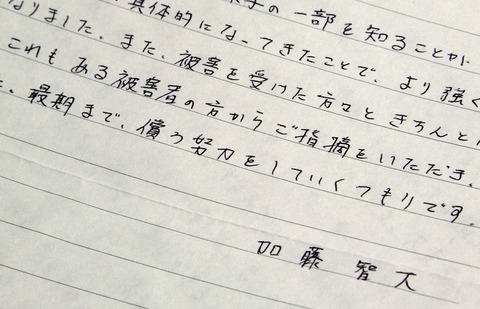 の一部を知ることが
なりました。また、被害を受けた方々ときちんと
具体的になってきたことで、より強く
これもある被害者の方からご指摘をいただき、
最期まで、償う努力をしていくつもりです。
加藤 智大